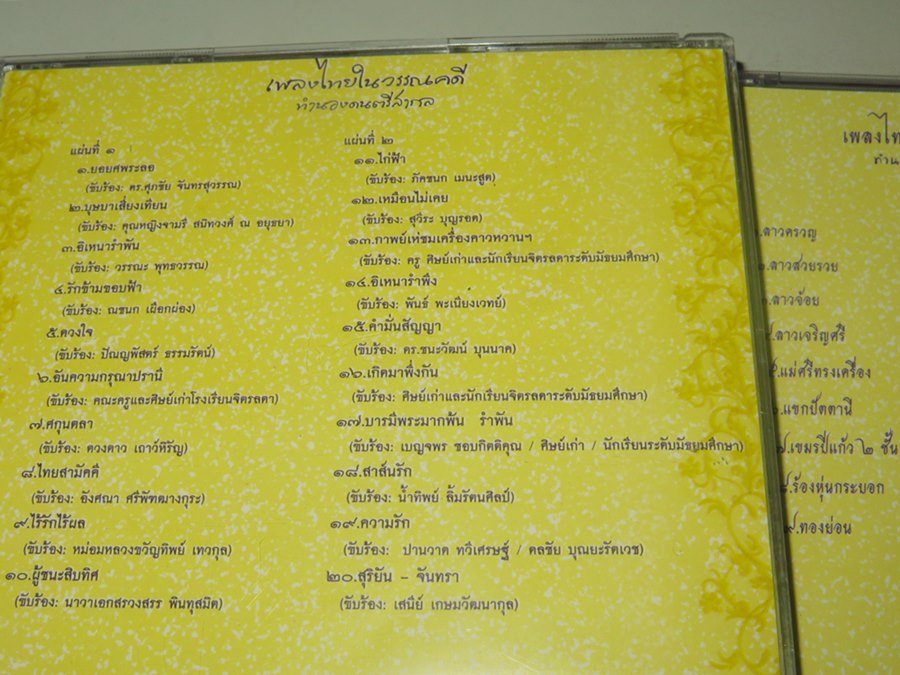 เพลงไทยในวรรณคดี
ทำนองดนตรีสากล
แผ่นที่ ๑
๑.ยอยศพระลอ
(ขับร้อง: ดร.ศุภชัย จันทรสุวรรณ)
๒.บุษบาเสี่ยงเทียน
(ขับร้อง: คุณหญิงจามรี สนิทวงศ์ ณ อยุธยา)
๓.อิเหนารำพัน
(ขับร้อง: วรรณะ พุทธวรรณ)
๔.รักข้ามขอบฟ้า
(ขับร้อง: ณชนก เผือกผ่อง)
๕.ดวงใจ
(ขับร้อง: ปัณญพัสตร์ ธรรมรัตน์)
๖.อันความกรุณาปรานี
(ขับร้อง: คณะครูและศิษย์เก่าโรงเรียนจิตรลดา)
๗.ศกุนตลา
(ขับร้อง: ดวงดาว เถาว์หิรัญ)
๘.ไทยสามัคคี
(ขับร้อง: อังศณา ศรีพัฑฒางกุระ)
๙.ไร้รักไร้ผล
(ขับร้อง: หม่อมหลวงขวัญทิพย์ เทวกุล)
๑๐.ผู้ชนะสิบทิศ
(ขับร้อง: นาวาเอกสรวงสรร พินทุสมิต)
แผ่นที่ ๒
๑๑.ไก่ฟ้า
(ขับร้อง: ภัคชนก เมนะสูต)
๑๒.เหมือนไม่เคย
(ขับร้อง: สุวีระ บุญรอด)
๑๓.กาพย์เห่ชมเครื่องคาวหวานฯ
(ขับร้อง: ครู ศิษย์เก่าและนักเรียนจิตรลดาระดับมัธยมศึกษา)
๑๔.อิเหนารำพึง
(ขับร้อง: พันธ์ พะเนียงเวทย์)
๑๕.คำมั่นสัญญา
(ขับร้อง: ดร.ชนะวัฒน์ บุนนาค)
๑๖.เกิดมาพึ่งกัน
(ขับร้อง: ศิษย์เก่าและนักเรียนจิตรลดาระดับมัธยมศึกษา)
๑๗.บารมีพระมากพ้น รำพัน
(ขับร้อง: เบญจพร ชอบกิตติคุณ / ศิษย์เก่า / นักเรียนระดับมัธยมศึกษา)
๑๘.สาส์นรัก
(ขับร้อง: น้ำทิพย์ ลิ้มรัตนศิลป์)
๑๙.ความรัก
(ขับร้อง: ปานวาด ทวีเศรษฐ์ / ดลชัย บุณยะรัตเวช)
๒๐.สุริยัน - จันทรา
(ขับร้อง: เสนีย์ เกษมวัฒนากุล)
เพลงไท
ทำน
.ลาวครวญ
.ลาวสวยรวย
.ลาวจ้อย
.ลาวเจริญศรี
.แม่ศรีทรงเครื่อง
.แขกปัตตานี
๗.เขมรปี่แก้ว ๒ ชั้น
๘.ร้องหุ่นกระบอก
๙.ทองย่อน